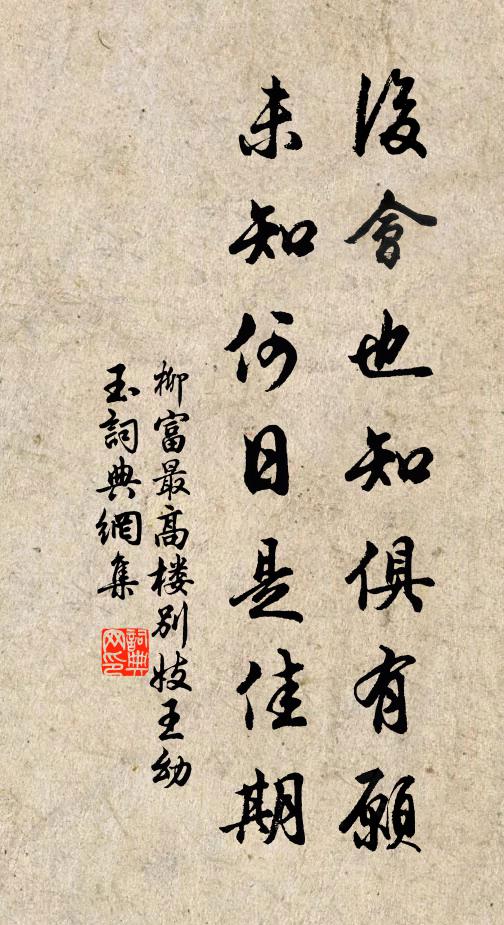 後會也知俱有願
未知何日是佳期
柳富最高樓別妓王幼
玉詞典網集
詞典
网印